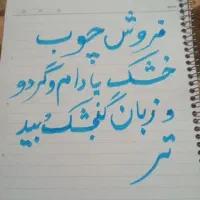 فروش چوب
خشک بادام و گردو
و زبان گنجشک بید
تر